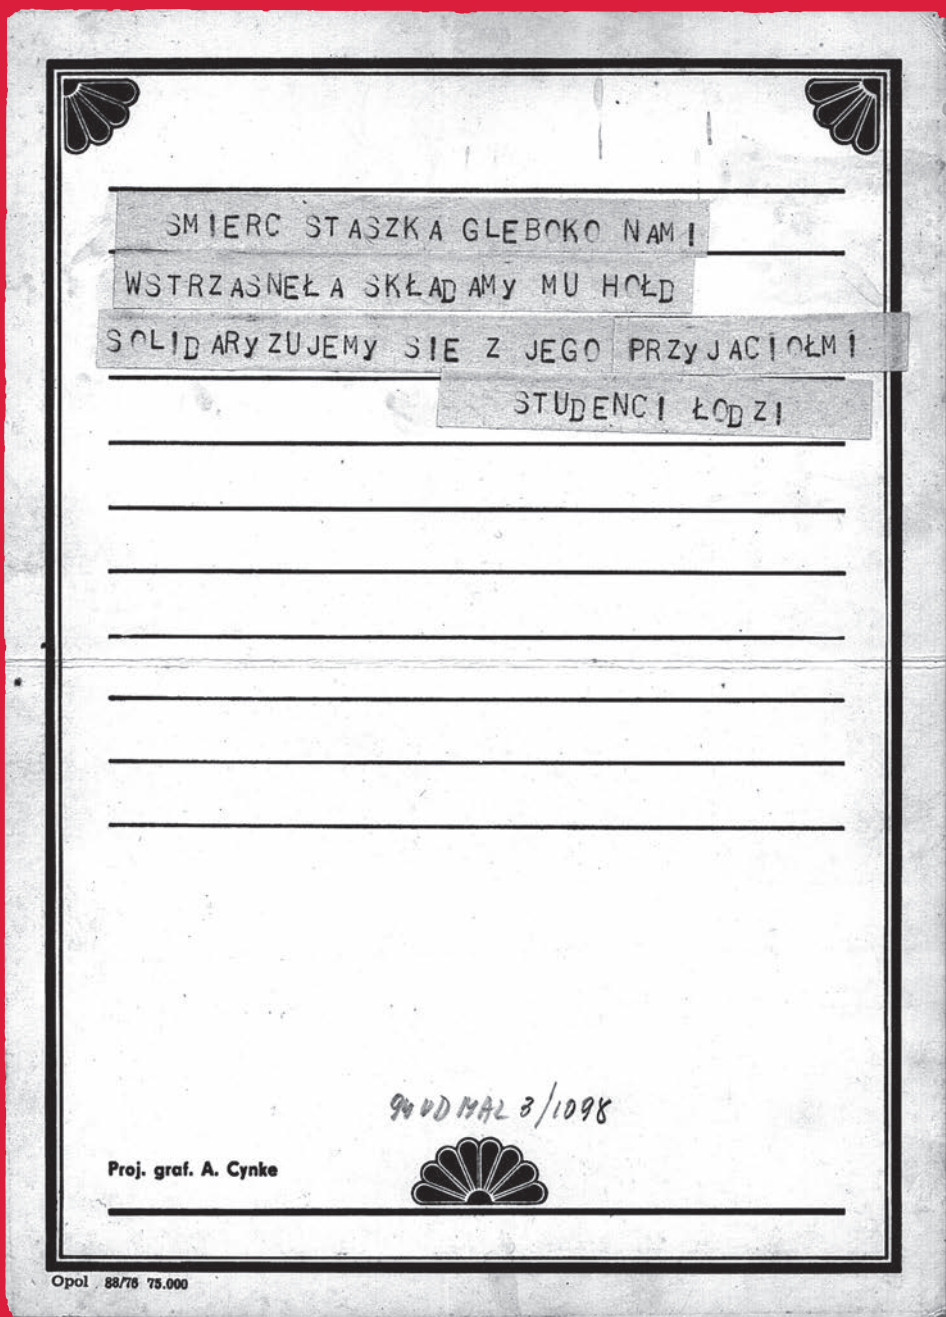 SMIERC STASZKA GLEBOKO NAMI
WSTRZASNEŁA SKŁADAMy MU HOŁD
SOLIDARyZUJEMy SIE Z JEGO PRZyJACIOŁMI
STUDENCI ŁODZI
3/1098
Proj. graf. A. Cynke
Opol . 88/76 75.000